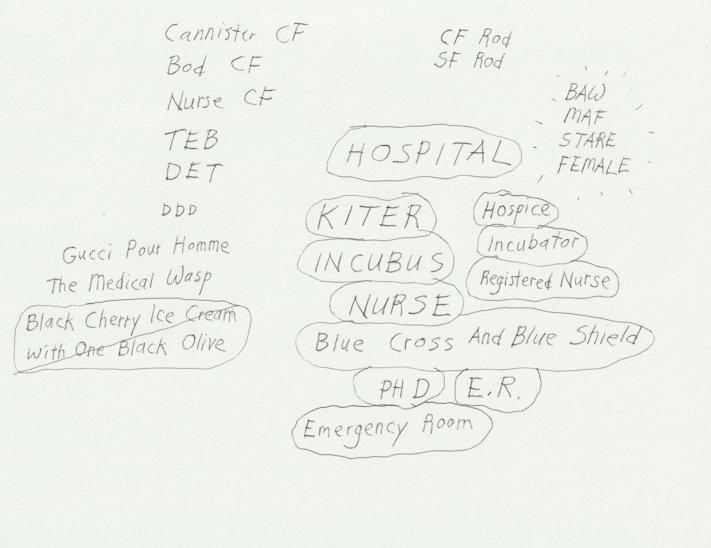 Cannister CF
Bod CF
Nurse CF
TEB
DET
DDD
Gucci Pour Homme
The Medical Wasp
Black Cherry Ice Cream
with One Black Olive
CF Rod
SF Rod
BAW
MAF
STARE
FEMALE
HOSPITAL
KITER
Hospice
INCUBUS
Incubator
Registered Nurse
NURSE
Blue Cross And Blue Shield
PHD
E.R.
Emergency Room